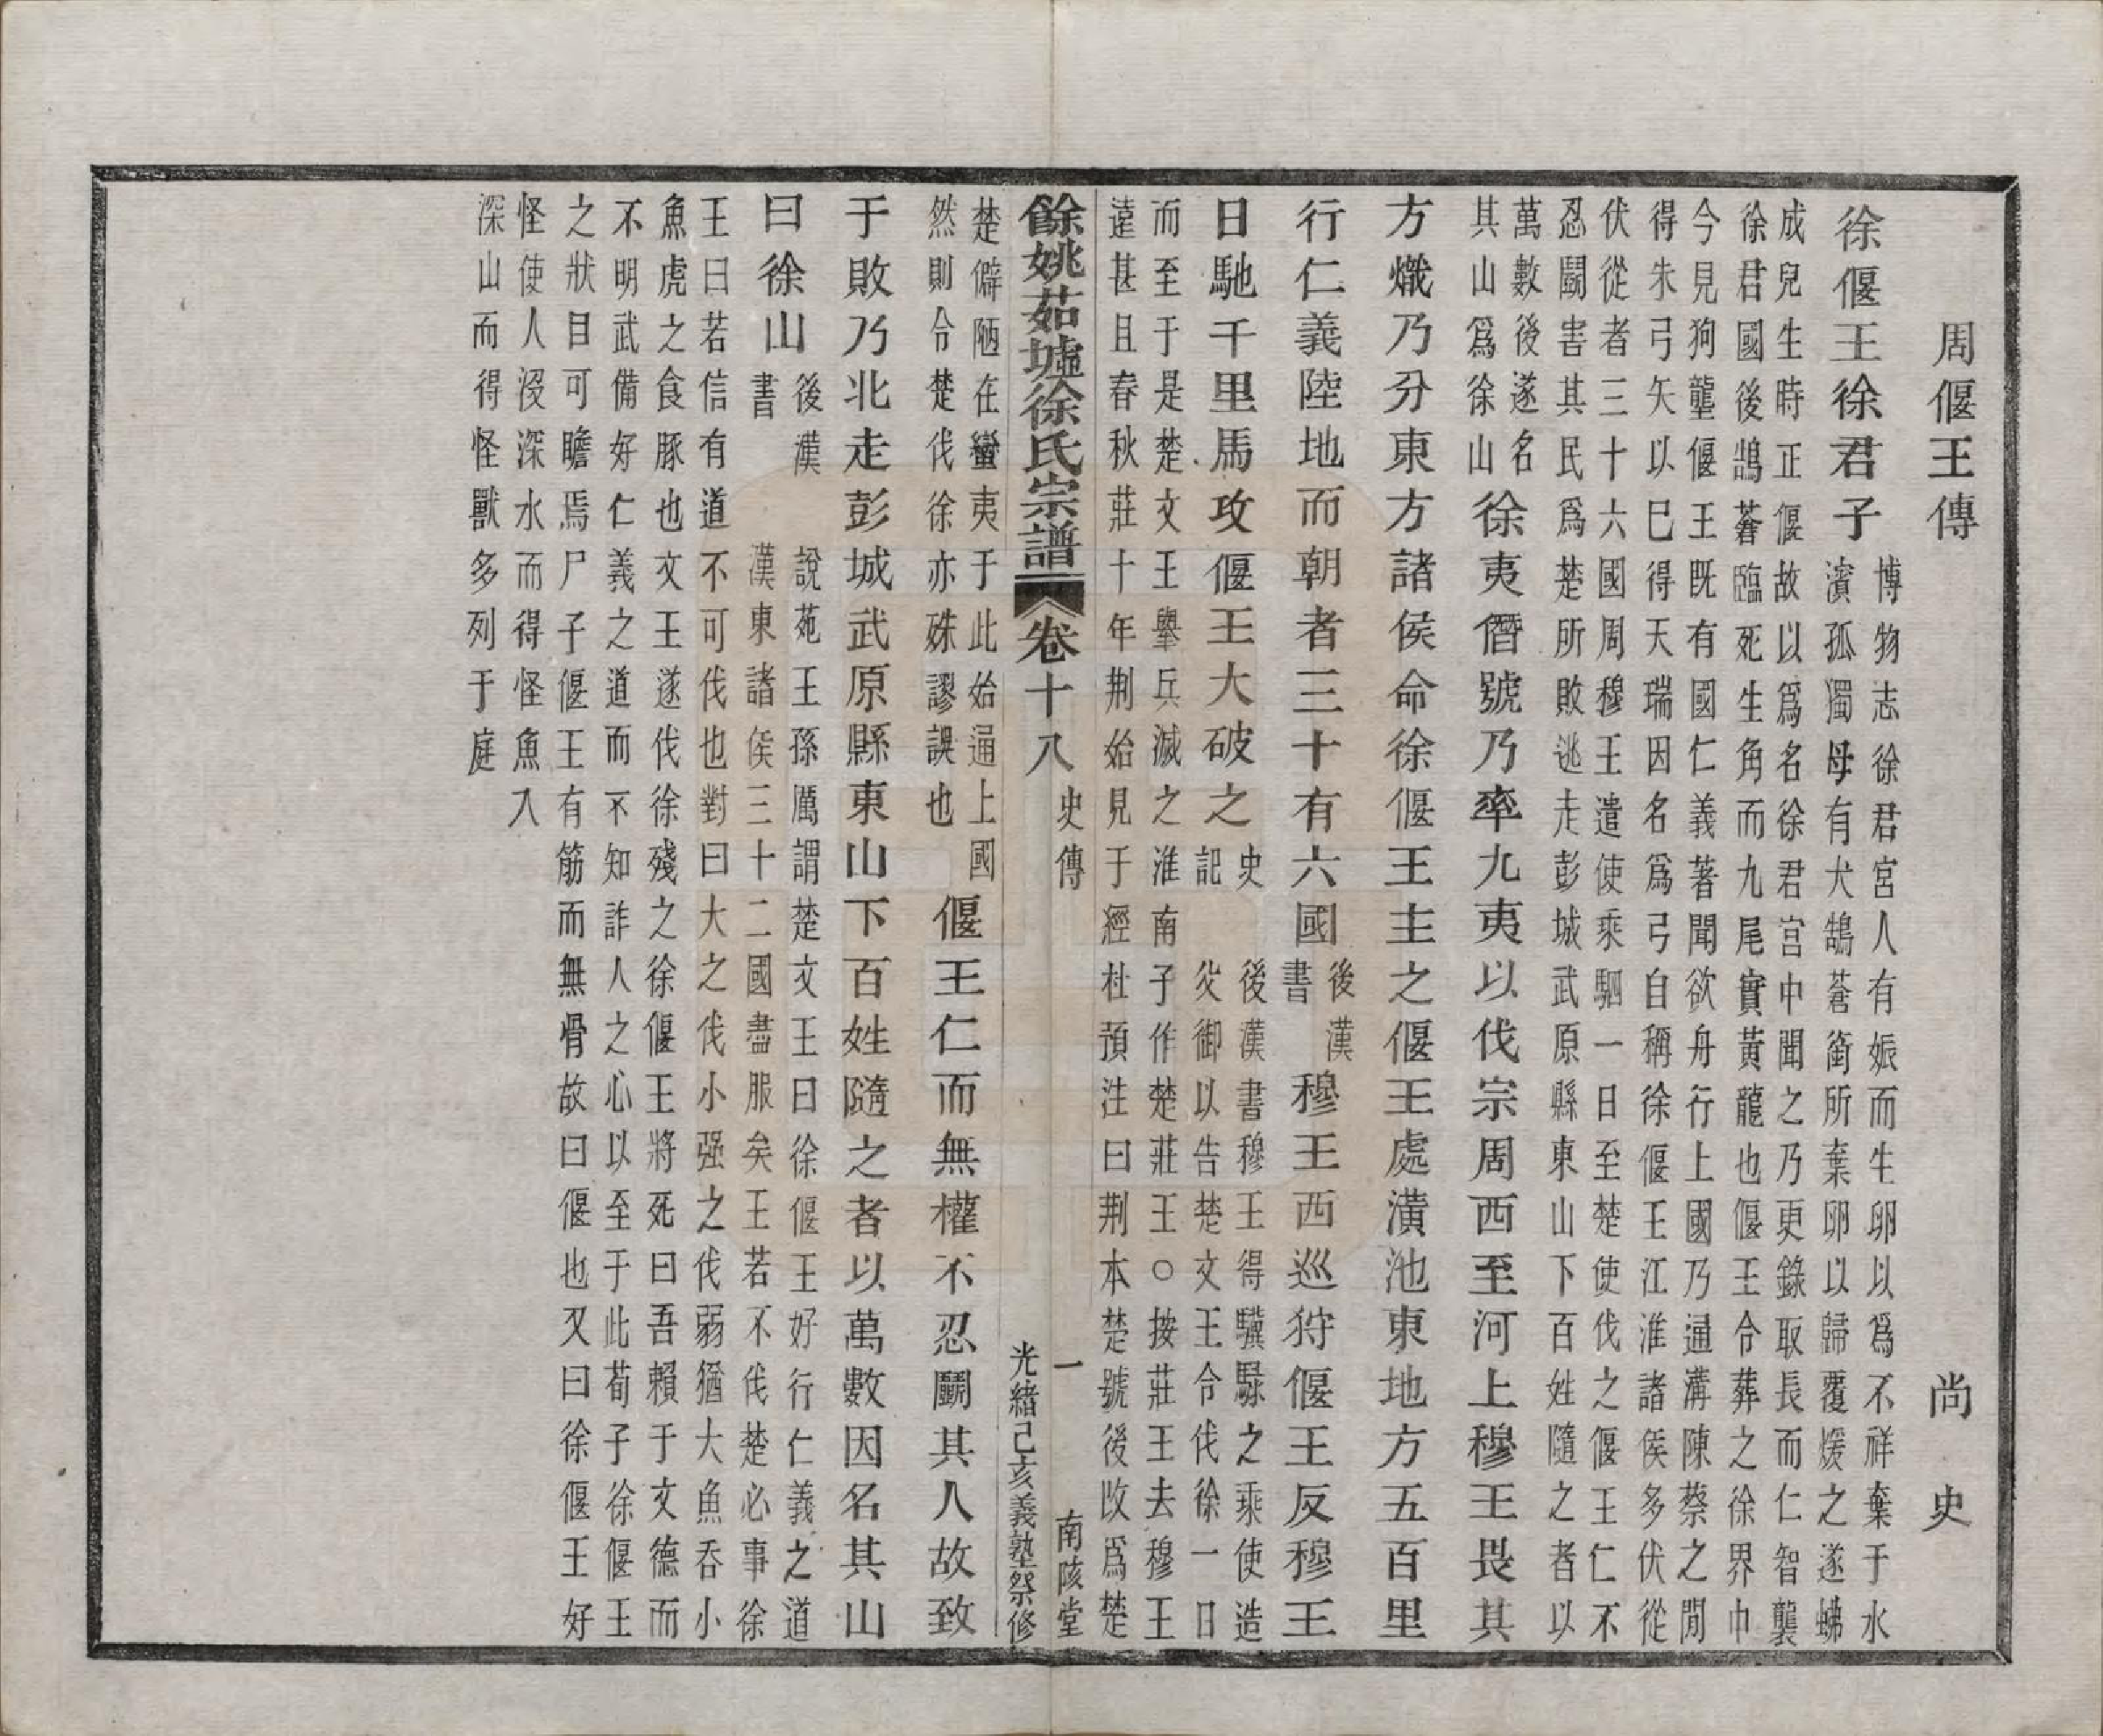 周偃王傳　尚史
徐偃王徐君子
博物志徐君宮人有娠而生卵以爲不祥棄于水
濱孤獨母有犬鵠蒼銜所棄卵以歸覆煖之遂䗖
成兒生時正偃故以爲名徐君宮中聞之乃更錄取長而仁智襲
徐君國後鵠蒼臨死生角而九尾實黃龍也偃王令葬之徐界中
今見狗壟偃王既有國仁義著聞欲舟行上國乃通溝陳蔡之閒
得朱弓矢以巳得天瑞因名爲弓自稱徐偃王江淮諸侯多伏從
伏從者三十六國周穆王遣使乘駟一日至楚使伐之偃王仁不
忍鬭害其民爲楚所敗逃走彭城武原縣東山下百姓隨之者以
萬數後遂名
其山爲徐山
徐夷僭號乃率九夷以伐宗周西至河上穆王畏其
方熾乃分東方諸侯命徐偃王主之偃王處潢池東地方五百里
行仁義陸地而朝者三十有六國
後漢
書
穆王西巡狩偃王反穆王
日馳千里馬攻偃王大破之
史
記
後漢書穆王得驥騄之乘使造
父御以告楚文王令伐徐一日
而至于是楚文王舉兵滅之淮南子作楚莊王○按莊王去穆王
遠甚且春秋莊十年荆始見于經杜預注曰荆本楚號後改爲楚
餘姚茹墟徐氏宗譜　卷十八　史傳　一　南陔堂　光緒己亥義塾祭修
楚僻陋在蠻夷于此始通上國
然則令楚伐徐亦殊謬誤也
偃王仁而無權不忍鬭其人故致
于敗乃北走彭城武原縣東山下百姓隨之者以萬數因名其山
曰徐山
後漢
書
說苑王孫厲謂楚文王曰徐偃王好行仁義之道
漢東諸侯三十二國盡服矣王若不伐楚必事徐
王曰若信有道不可伐也對曰大之伐小强之伐弱猶大魚吞小
魚虎之食豚也文王遂伐徐殘之徐偃王將死曰吾賴于文德而
不明武備好仁義之道而不知詐人之心以至于此荀子徐偃王
之狀目可瞻焉尸子偃王有筋而無骨故曰偃也又曰徐偃王好
怪使人沒深水而得怪魚入
深山而得怪獸多列于庭